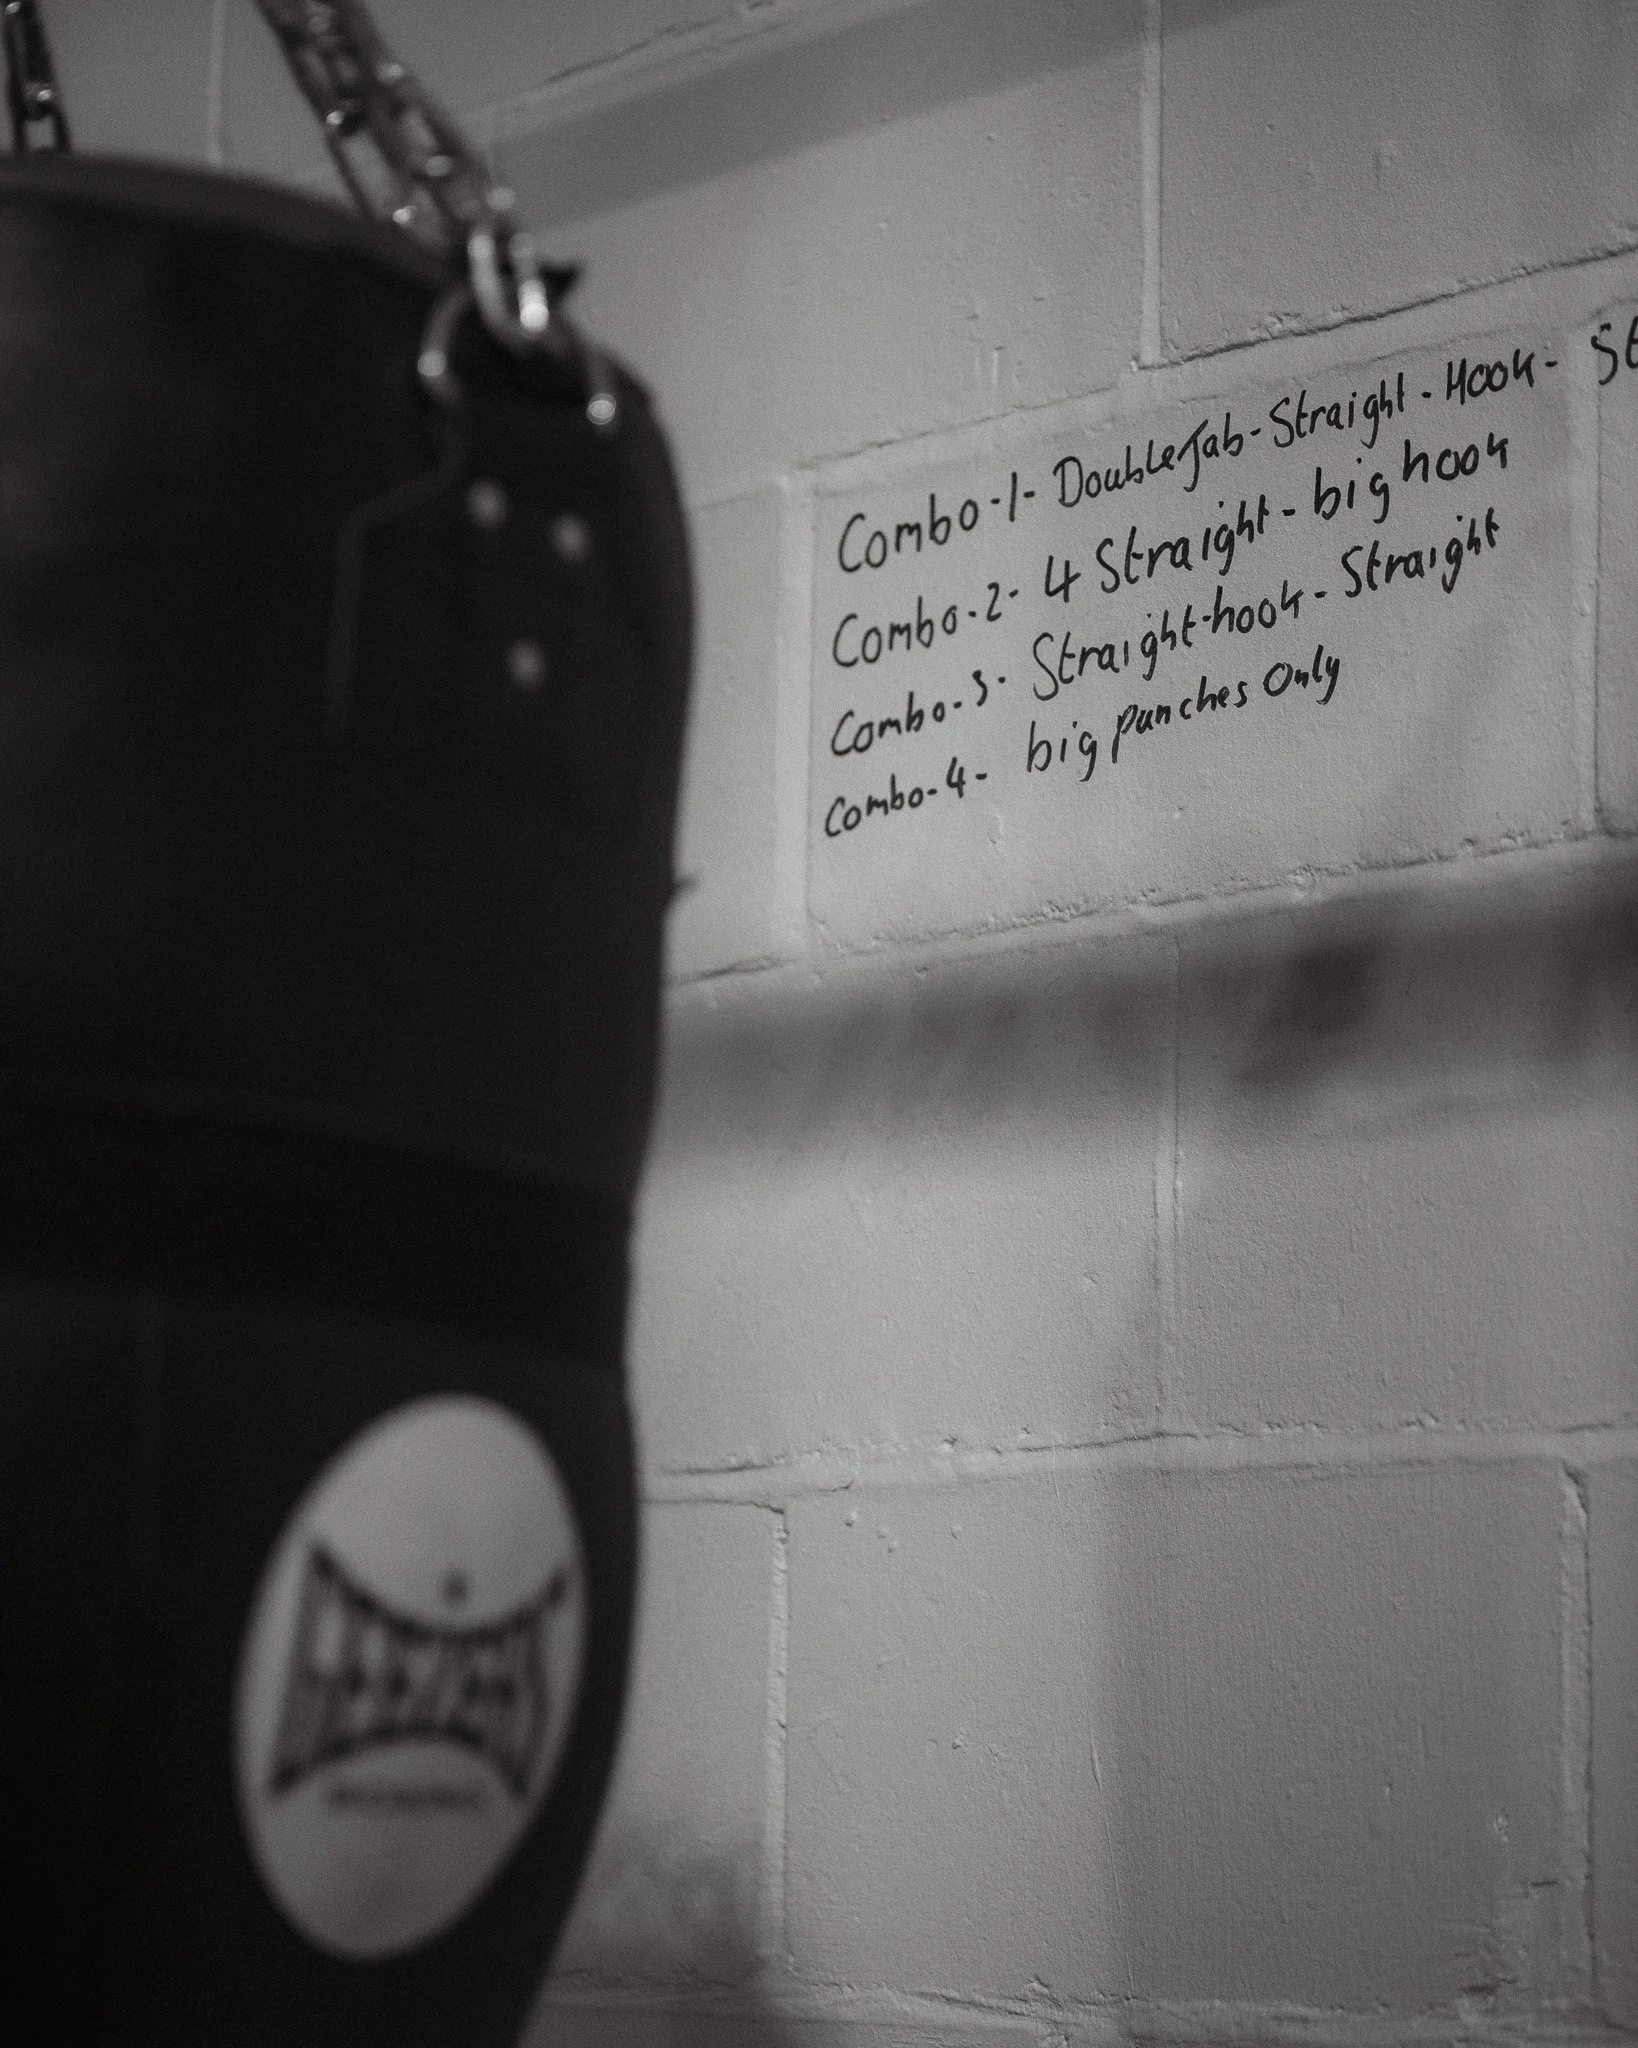 Combo-1- Double Jab-Straight-Hook- St
Combo-2- 4 Straight-big hook
Combo-3- Straight-hook-Straight
Combo-4- big punches Only